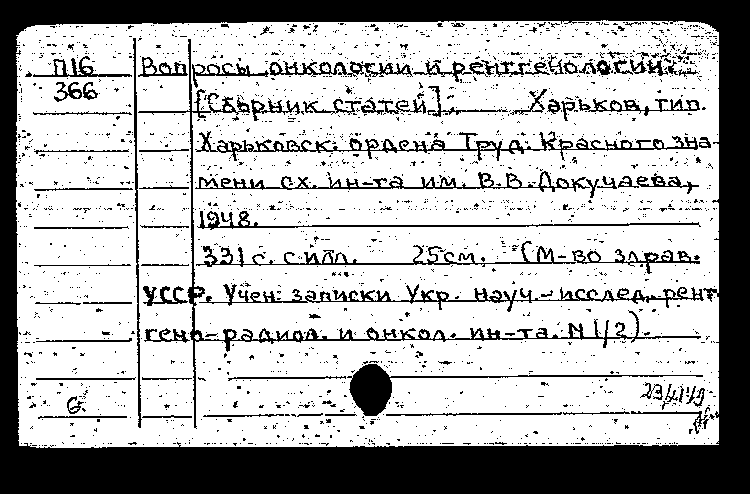 П16
366
Вопросы онкологии и рентгенологии.
[Сборник статей]. Харьков, тип.
Харьковск. ордена Труд. Красного зна-
мени сх. ин-та им. В.В. Докучаева,
1948.
331 с. с илл. 25см. (М-во здрав.
УССР. Учен. записки Укр. науч.-исслед. рент-
гено-радиол. и онкол. ин-та. N 1/2).